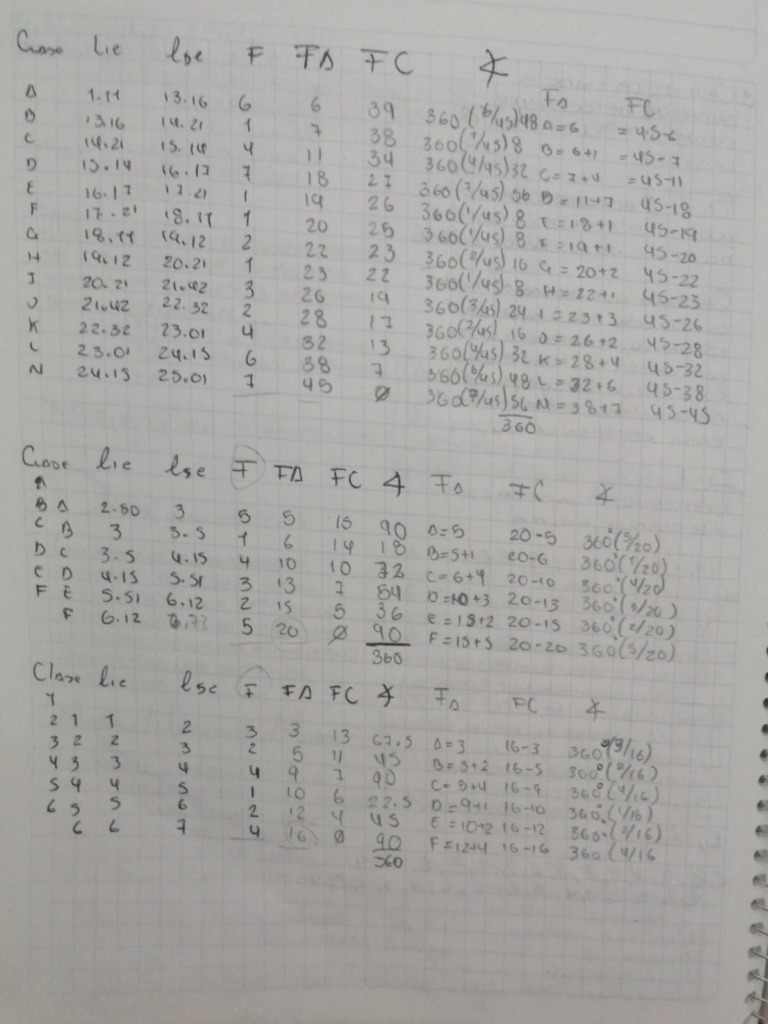 Clase Lie lse F FA FC ∡
FA FC
A 1.11 13.16 6 6 39 360(6/45)48 A=6 =45-6
B 13.16 14.21 1 7 38 360(1/45)8 B=6+1 =45-7
C 14.21 15.14 4 11 34 360(4/45)32 C=7+4 =45-11
D 15.14 16.17 7 18 27 360(7/45)56 D=11+7 45-18
E 16.17 17.21 1 19 26 360(1/45)8 E=18+1 45-19
F 17.21 18.11 1 20 25 360(1/45)8 F=19+1 45-20
G 18.11 19.12 2 22 23 360(2/45)16 G=20+2 45-22
H 19.12 20.21 1 23 22 360(1/45)8 H=22+1 45-23
I 20.21 21.42 3 26 19 360(3/45)24 I=23+3 45-26
J 21.42 22.32 2 28 17 360(2/45)16 J=26+2 45-28
K 22.32 23.01 4 32 13 360(4/45)32 K=28+4 45-32
L 23.01 24.15 6 38 7 360(6/45)48 L=32+6 45-38
M 24.15 25.01 7 45 0 360(7/45)56 M=38+7 45-45
360
Clase lie lse F FA FC ∡ FA FC ∡
A
B A 2.50 3 5 5 15 90 A=5 20-5 360°(5/20)
C B 3 3.5 1 6 14 18 B=5+1 20-6 360°(1/20)
D C 3.5 4.15 4 10 10 72 C=6+4 20-10 360°(4/20)
E D 4.15 5.51 3 13 7 54 D=10+3 20-13 360°(3/20)
F E 5.51 6.12 2 15 5 36 E=13+2 20-15 360°(2/20)
F 6.12 5 20 0 90 F=15+5 20-20 360°(5/20)
360
Clase lie lsc F FA FC ∡ FA FC ∡
1
2 1 1 2 3 3 13 67.5 A=3 16-3 360°(3/16)
3 2 2 3 2 5 11 45 B=3+2 16-5 360°(2/16)
4 3 3 4 4 9 7 90 C=5+4 16-9 360°(4/16)
5 4 4 5 1 10 6 22.5 D=9+1 16-10 360°(1/16)
6 5 5 6 2 12 4 45 E=10+2 16-12 360°(2/16)
6 6 7 4 16 0 90 F=12+4 16-16 360(4/16
360